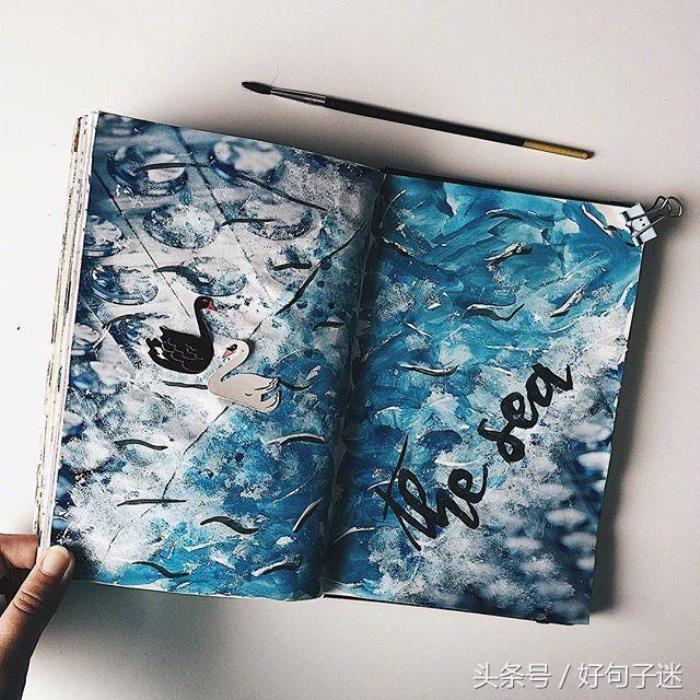 the sea
头条号 / 好句子迷